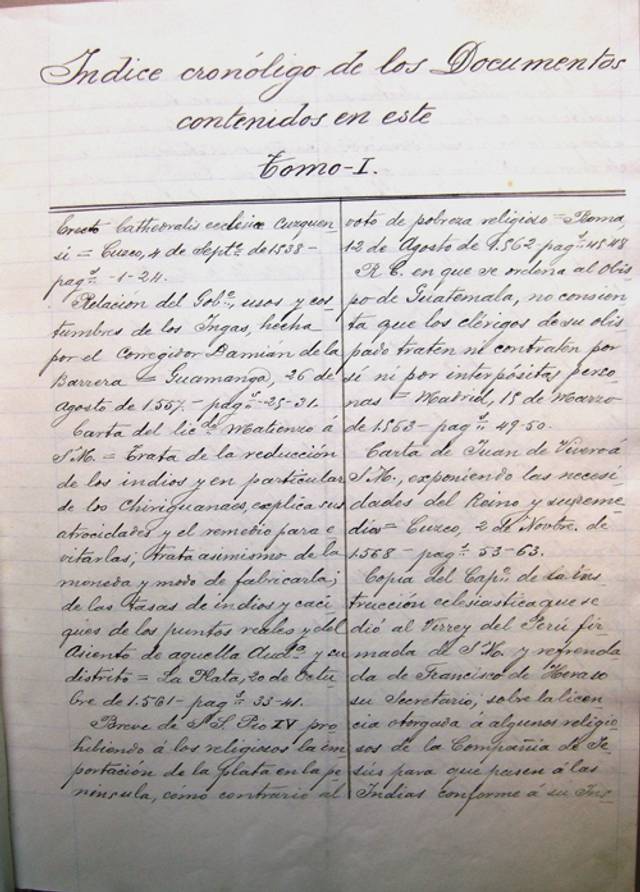 Indice cronóligo de los Documentos
contenidos en este
Tomo-I.
Erectº Cathedralis eclesiæ Cuzquen-
si = Cuzco, 4 de Septe. de 1538-
pags. -1-24.
Relación del Gobº, usos y cos-
tumbres de los Ingas, hecha
por el Corregidor Damián de la
Barrera = Guamanga, 26 de
Agosto de 1.557. - pags. -25-31.
Carta del licdo. Matienzo á
S.M. = Trata de la reducción
de los indios y en particular
de los Chiriguanaes, explica sus
atrocidades y el remedio para e-
vitarlas; trata asimismo de la
moneda y modo de fabricarla;
de las tasas de indios y caci-
ques de los puntos reales y del
Asiento de aquella Auda. y su
distrito = La Plata, 20 de Octu-
bre de 1.561 - pags. 33-41.
Breve de S.S. Pio IV pro-
hibiendo á los religiosos la im-
portación de la plata en la pe-
ninsula, cómo contrario al
voto de pobreza religioso = Roma,
12 de Agosto de 1.562 - pags. 45-48
R. C. en que se ordena al Obis-
po de Guatemala, no consien-
ta que los clérigos de su obis-
pado traten ni contraten por
sí ni por interpósitas perso-
nas = Madrid, 15 de Marzo
de 1.563 - pags. 49-50.
Carta de Juan de Vivero á
S.M., exponiendo las necesi-
dades del Reino y su reme-
dio = Cuzco, 2 de Novbre. de
1.568 - pags. 53-63.
Copia del Capº. de la Ins-
trucción eclesiastica que se
dió al Virrey del Perú fir-
mada de S.M. y refrenda-
da de Francisco de Heraso
su Secretario; sobre la licen-
cia otorgada á algunos religio-
sos de la Compañia de Je-
sús para que pasen á las
Indias conforme á su Ins-